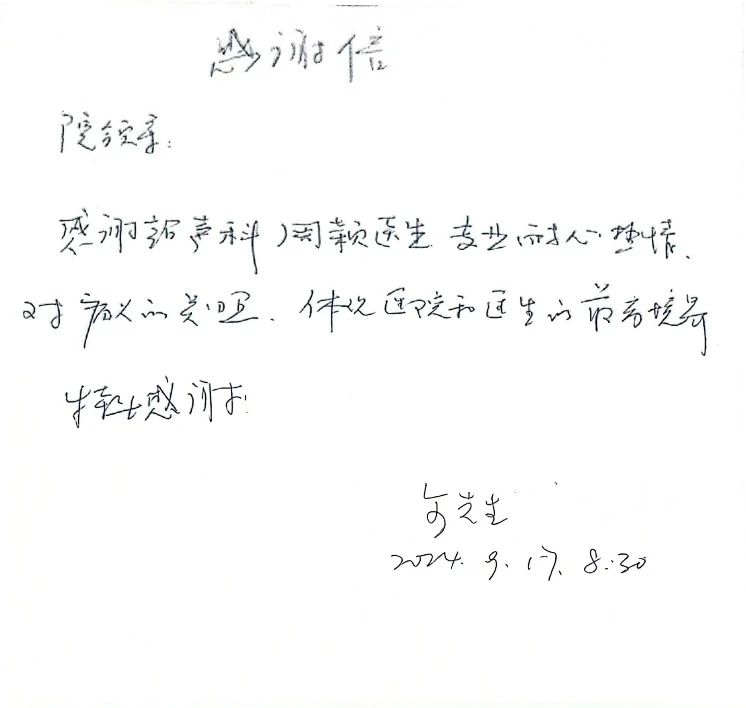 感谢信
院领导：
感谢超声科周颖医生专业耐心热情、
对病人的关心，体现医院和医生的最高境界
特此感谢！
先生
2024.9.17. 8:30